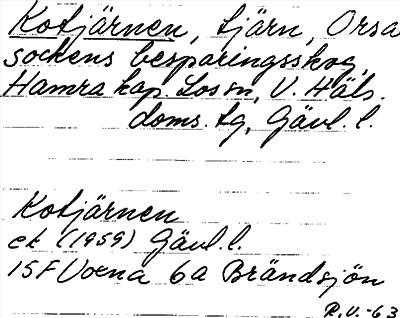 Kotjärnen, tjärn, Orsa
sockens besparingsskog,
Hamra kap. Los sn, V. Häls.
doms. tg, Gävl. l.
Kotjärnen
ek (1959) Gävl. l.
15F Voxna 6a Brändsjön
R.V.-63